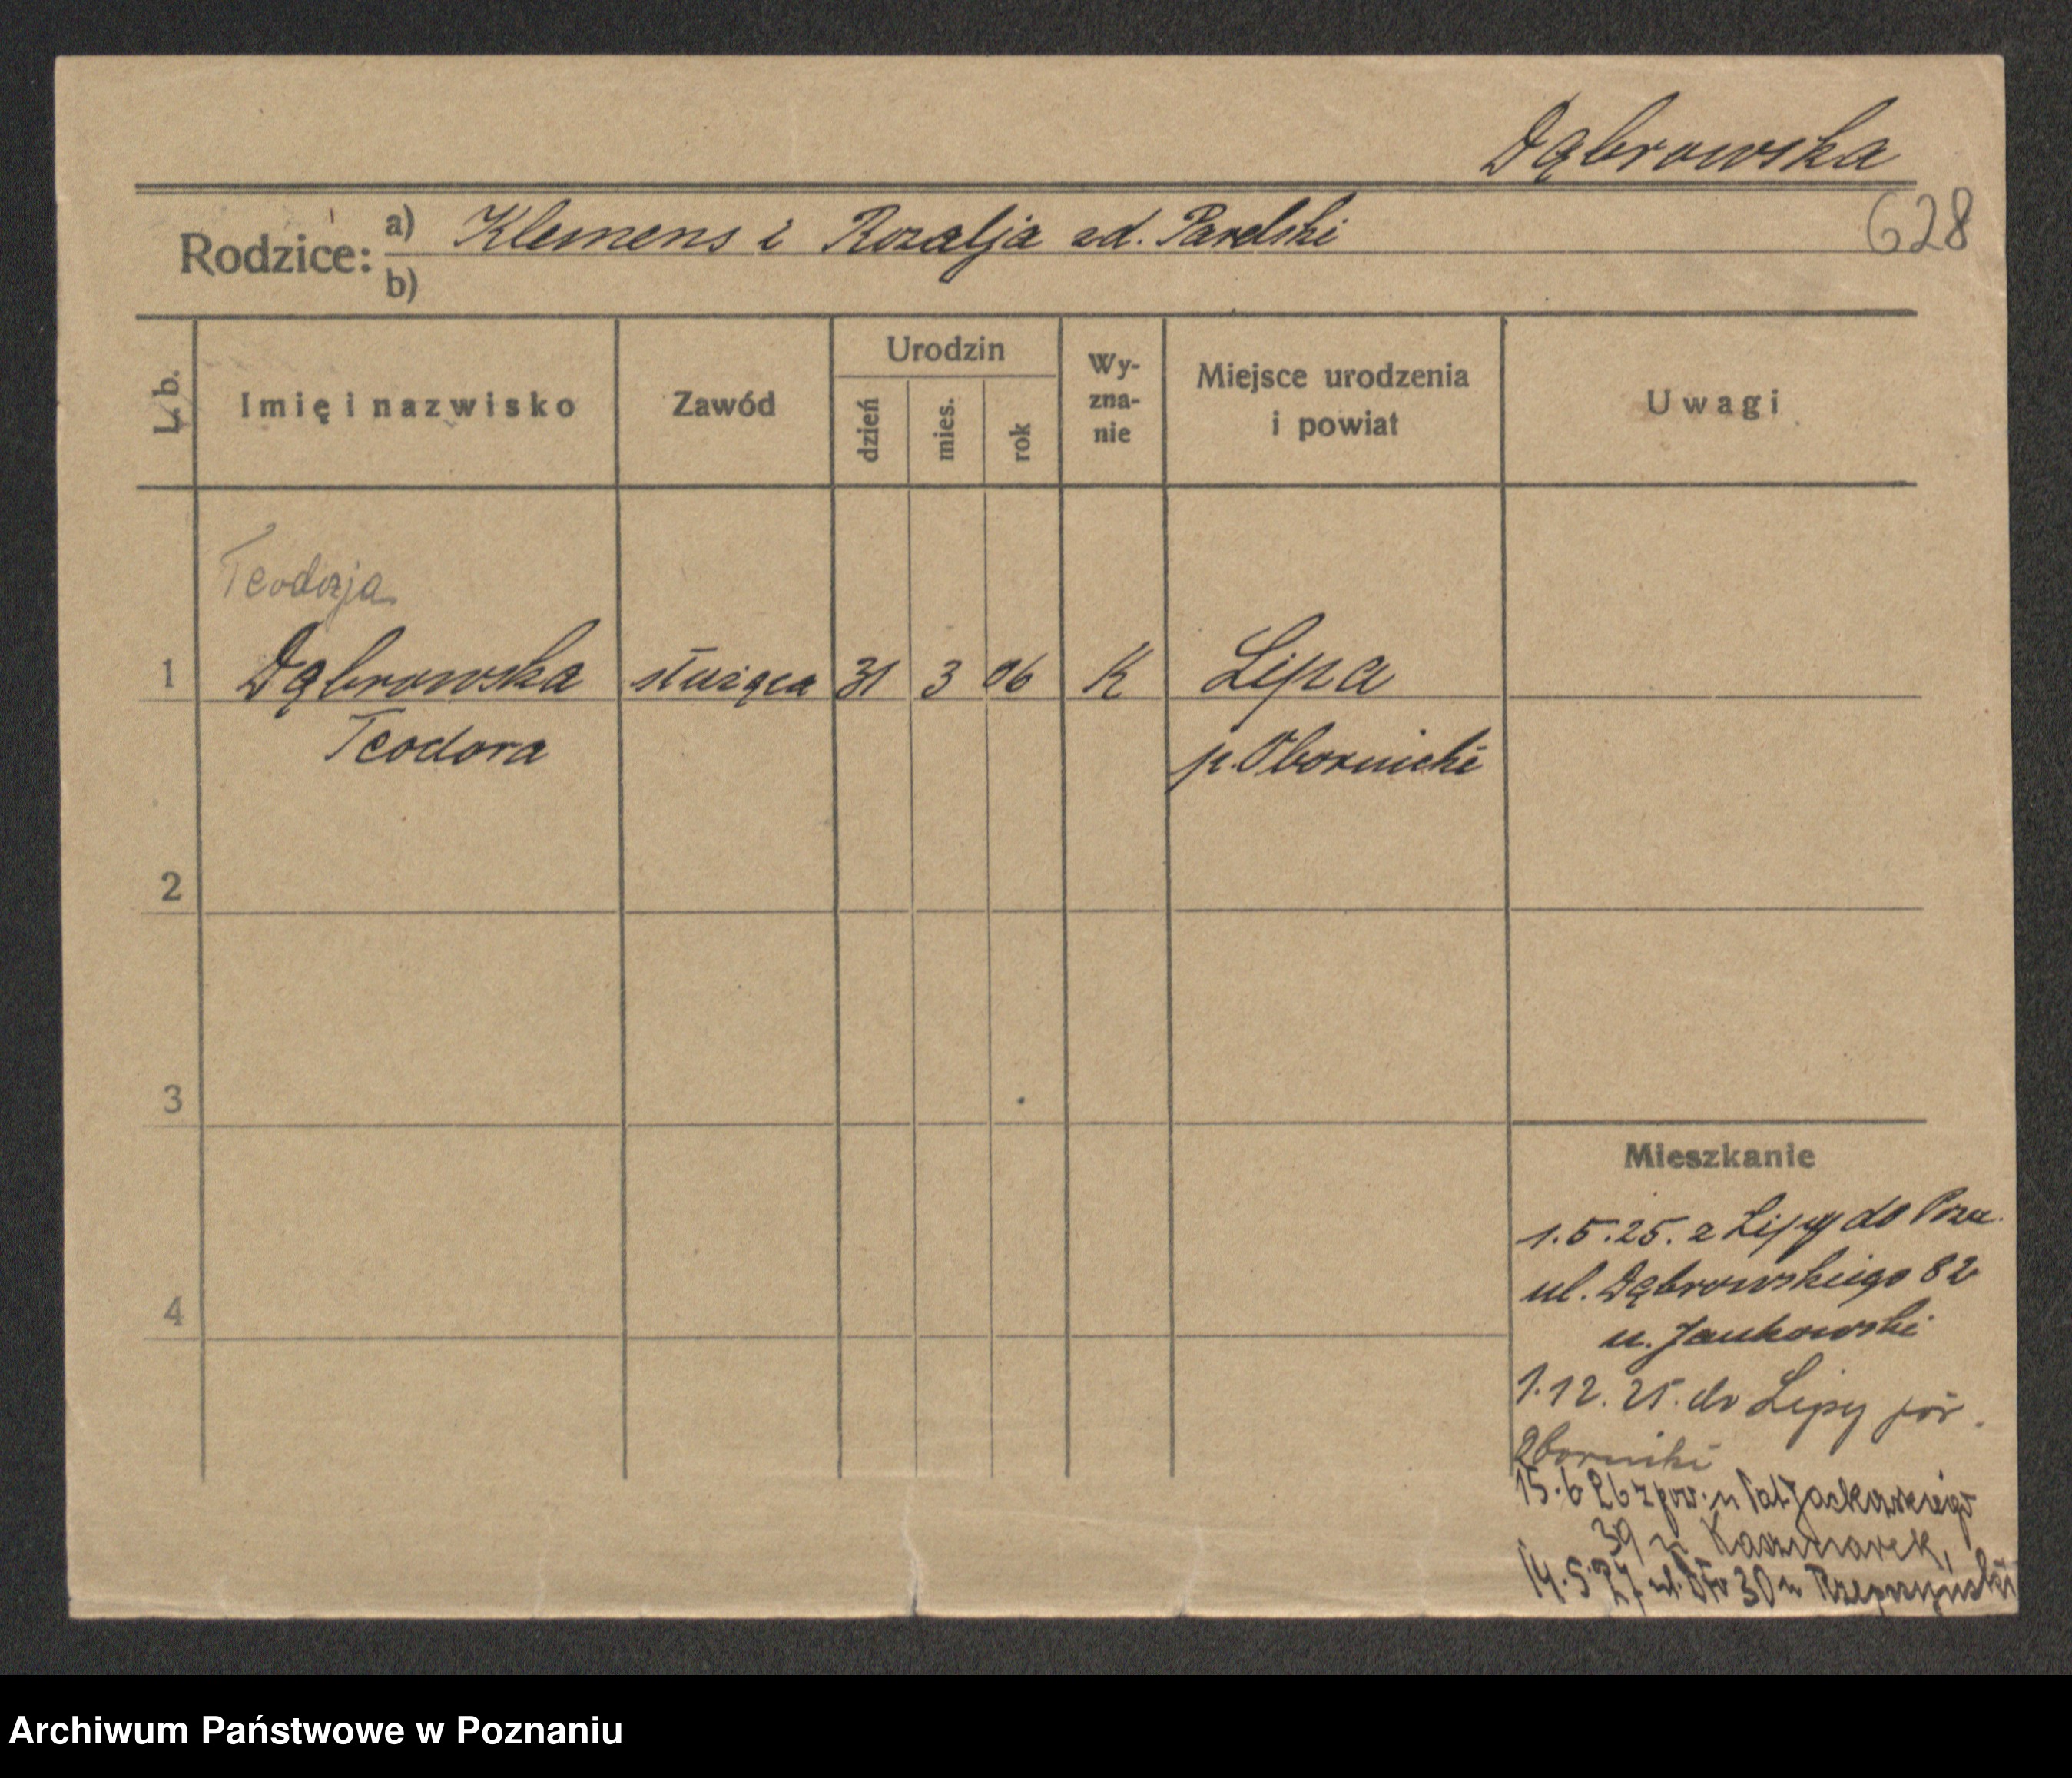 Dąbrowska
628
Rodzice: a) Klemens i Rozalja zd. Pawelski
b)
L. b.
Imię i nazwisko
Zawód
Urodzin
dzień
mies.
rok
Wy-
zna-
nie
Miejsce urodzenia
i powiat
Uwagi
Teodozja
1 Dąbrowska służąca 31 3 06 K Lipa
Teodora p. Obornicki
2
3
4
Mieszkanie
1.5.25. z Lipy do Pozn.
ul. Dąbrowskiego 82
u. Jankowski
1.12.25. do Lipy pow.
Oborniki
15.6 26 z pow. u Pat. Jackowskiego
39 u Kaczmarek,
14.5.27 ul. 30 u Rzepczyński
Archiwum Państwowe w Poznaniu